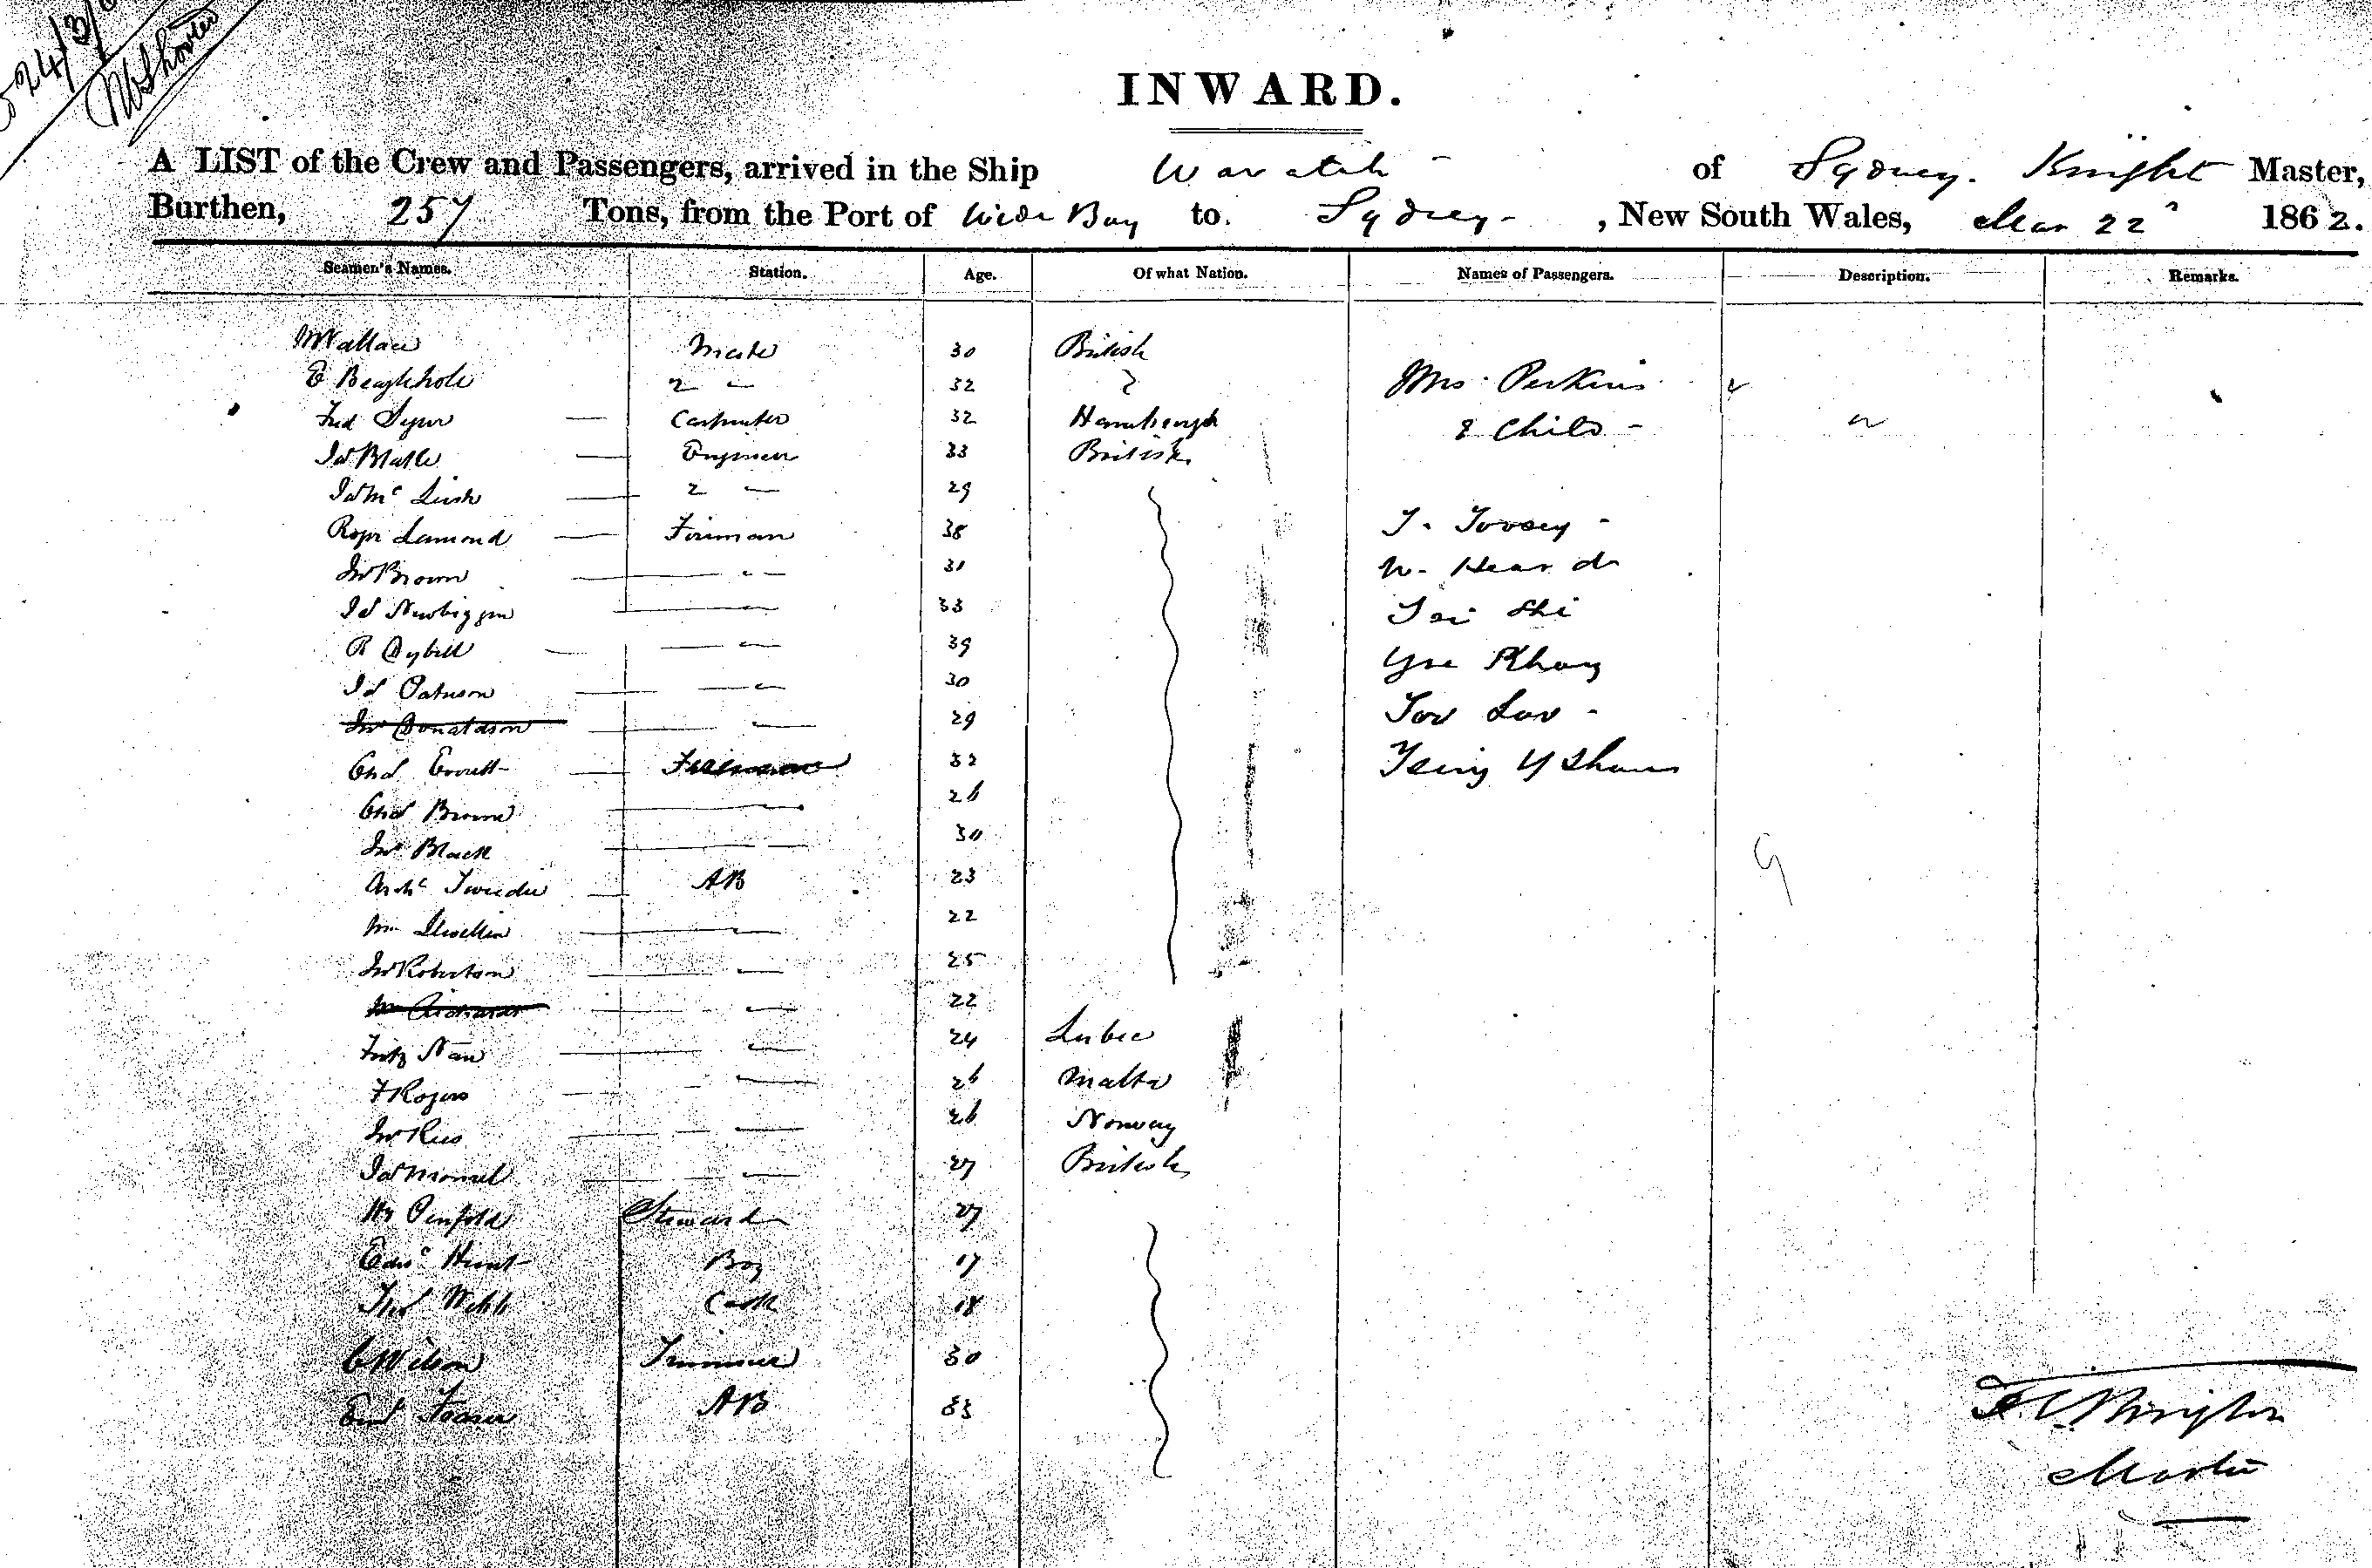 24/3/6
INWARD.
A LIST of the Crew and Passengers, arrived in the Ship Waratah of Sydney. Knight Master,
Burthen, 257 Tons, from the Port of Wide Bay to Sydney , New South Wales, Mar 22 1862.
Seamen's Names. Station. Age. Of what Nation. Names of Passengers. Description. Remarks.
Wallace Mate 30 British
E Beaglehole 2 " 32 " Mrs Perkins
Fred Carpenter 32 Hamburgh & Child
Jas Blake Engineer 33 British
Jas Mc 2 " 29
Robt Lamond Fireman 38 J. Toosey
Jno Brown " 31 W. Heard
Jas Newbiggin " 33 Shi
R Dybell " 39 Khay
Jas Paterson " 30 Low
Jno Donaldson " 29
Chas Everett Fireman 32
Chas Brown " 26
Jno Black " 30
Archd Tweedie AB 23
Wm Llewellin " 22
Jno Robertson " 25
Wm Richards " 22
Fritz Nau " 24 Lubec
F Rogers " 26 Malta
Jno Rees " 26 Norway
Jas " 27 British
Hy Penfold Steward 27
Edwd Hunt Boy 17
Thos Webb Cook 18
C Wilson Trimmer 30
Fraser AB 33
Master